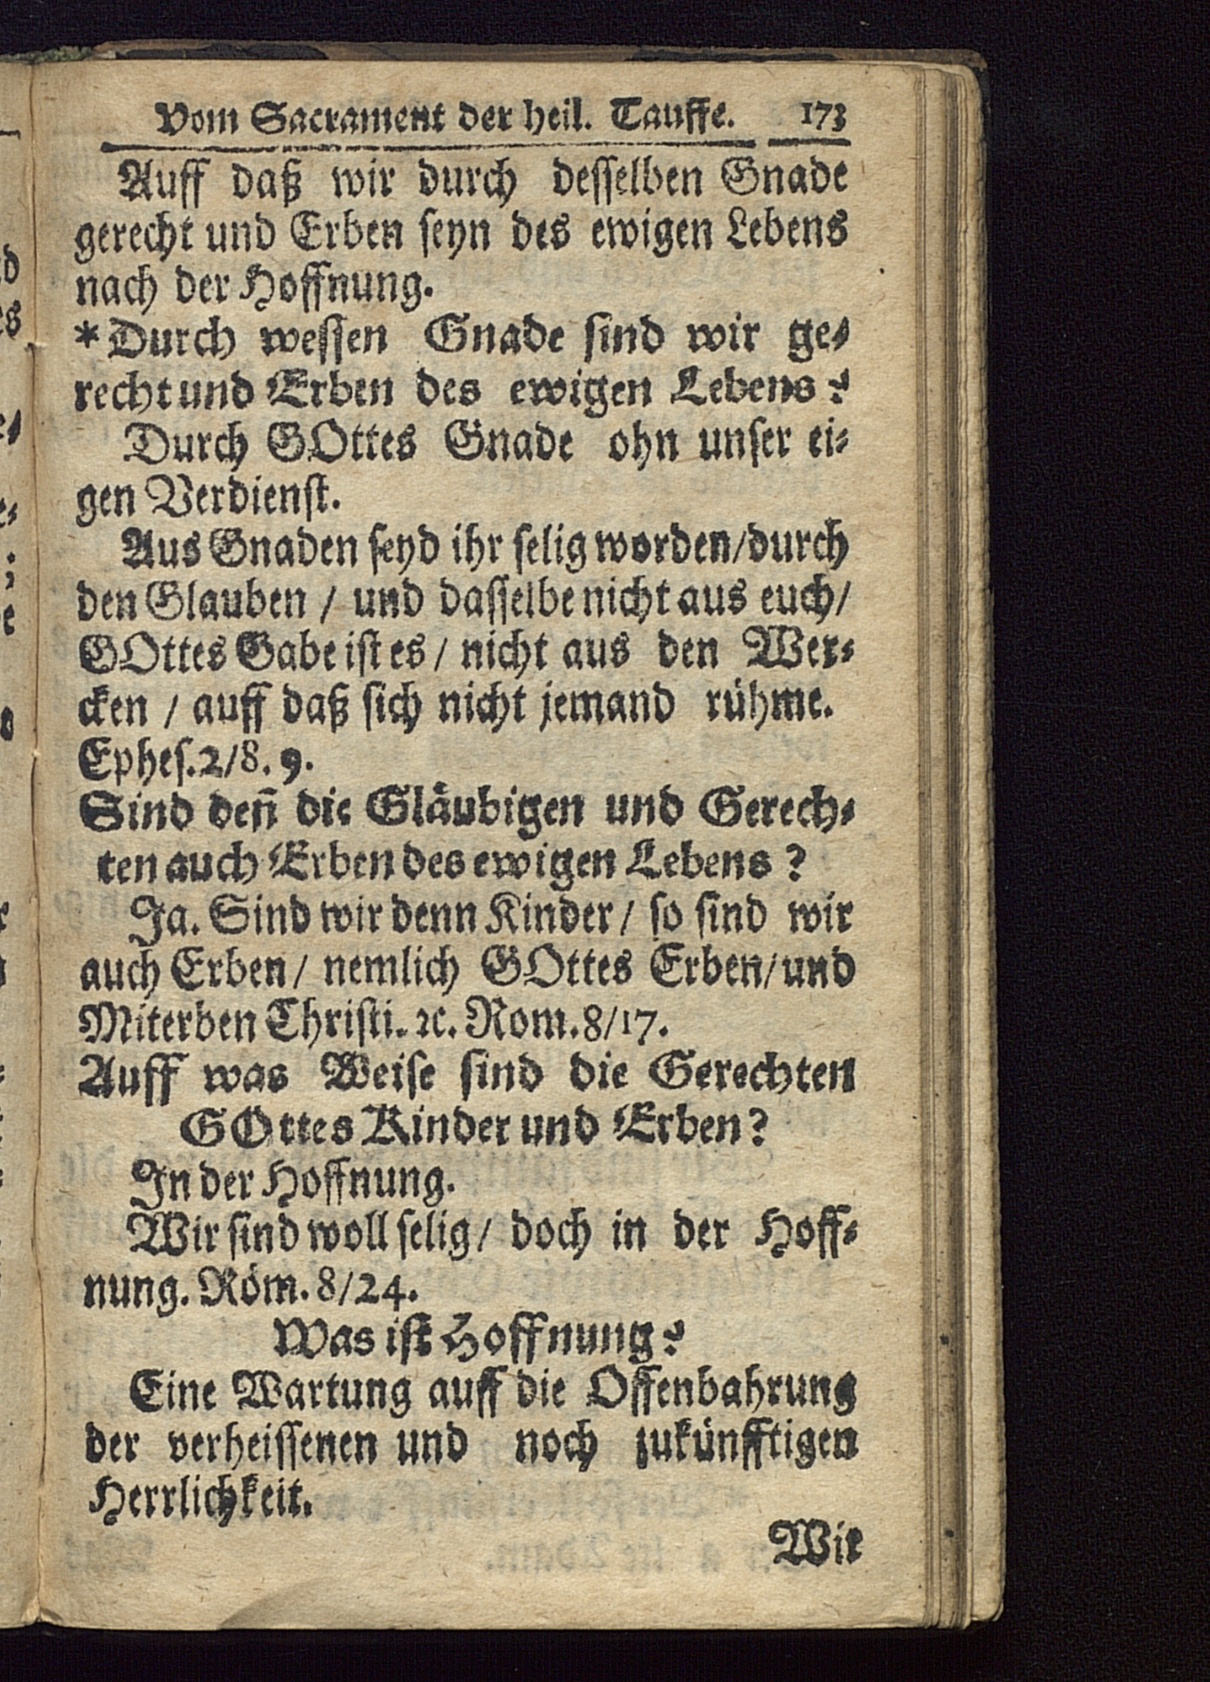 Vom Sacrament der heil. Tauffe. 173
Auff daß wir durch desselben Gnade
gerecht und Erben seyn des ewigen Lebens
nach der Hoffnung.
*Durch wessen Gnade sind wir ge-
recht und Erben des ewigen Lebens?
Durch GOttes Gnade ohn unser ei-
gen Verdienst.
Aus Gnaden seyd ihr selig worden/durch
den Glauben / und dasselbe nicht aus euch/
GOttes Gabe ist es / nicht aus den Wer-
cken / auff daß sich nicht jemand rühme.
Ephes.2/8. 9.
Sind deñ die Gläubigen und Gerech-
ten auch Erben des ewigen Lebens?
Ja. Sind wir denn Kinder / so sind wir
auch Erben/ nemlich GOttes Erben/und
Miterben Christi. ꝛc. Rom.8/17.
Auff was Weise sind die Gerechten
GOttes Kinder und Erben?
In der Hoffnung.
Wir sind woll selig/ doch in der Hoff-
nung. Röm. 8/24.
Was ist Hoffnung?
Eine Wartung auff die Offenbahrung
der verheissenen und noch zukünfftigen
Herrlichkeit.
Wir